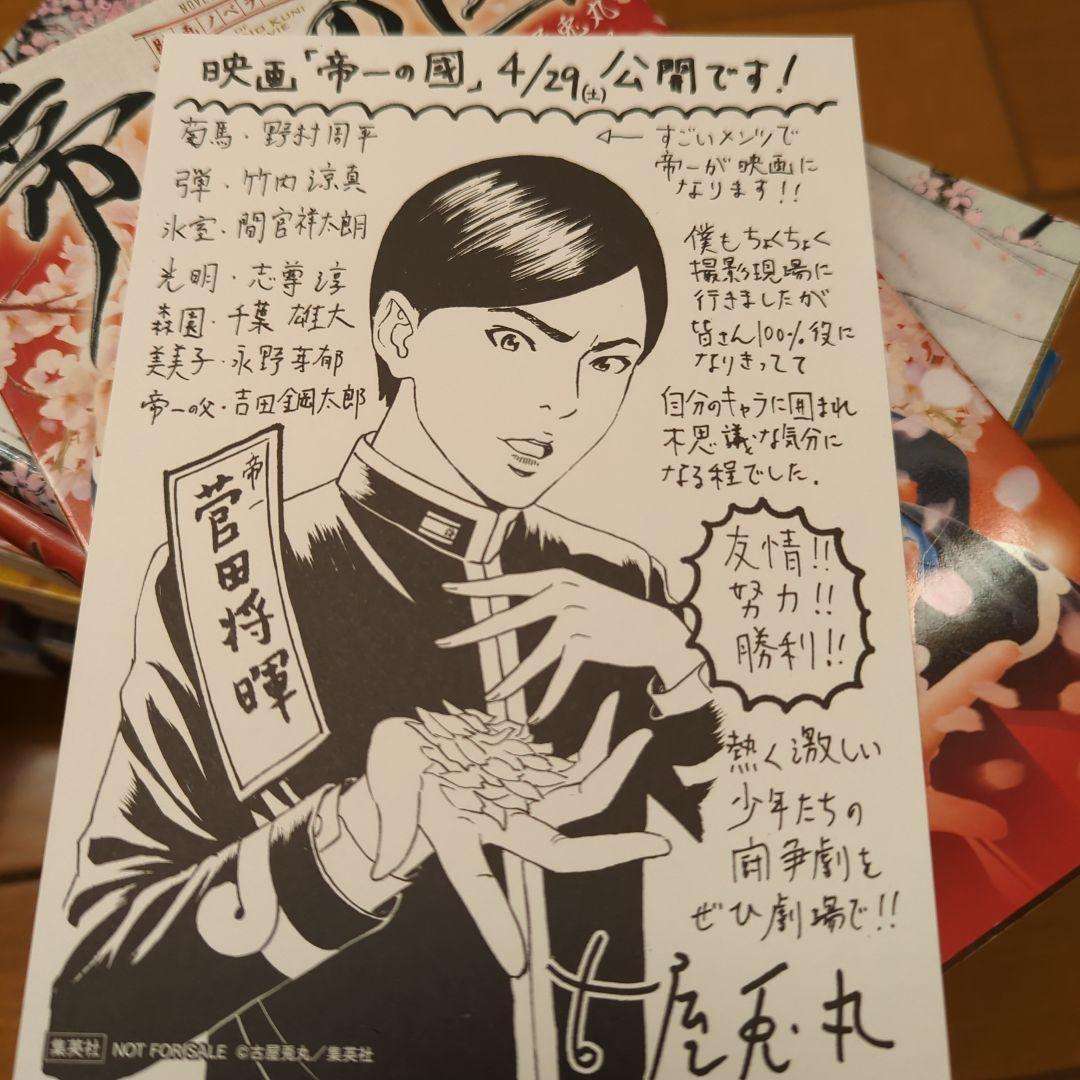 映画「帝一の國」4/29(土)公開です!
菊馬・野村周平
弾・竹内涼真
氷室・間宮祥太朗
光明・志尊淳
森園・千葉雄大
美美子・永野芽郁
帝一の父・吉田鋼太郎
帝一
菅田将暉
← すごいメンツで
帝一が映画に
なります!!
僕もちょくちょく
撮影現場に
行きましたが
皆さん100%役に
なりきってて
自分のキャラに囲まれ
不思議な気分に
なる程でした.
友情!!
努力!!
勝利!!
熱く激しい
少年たちの
闘争劇を
ぜひ劇場で!!
古屋兎丸
集英社 NOT FOR SALE ©古屋兎丸/集英社
帝